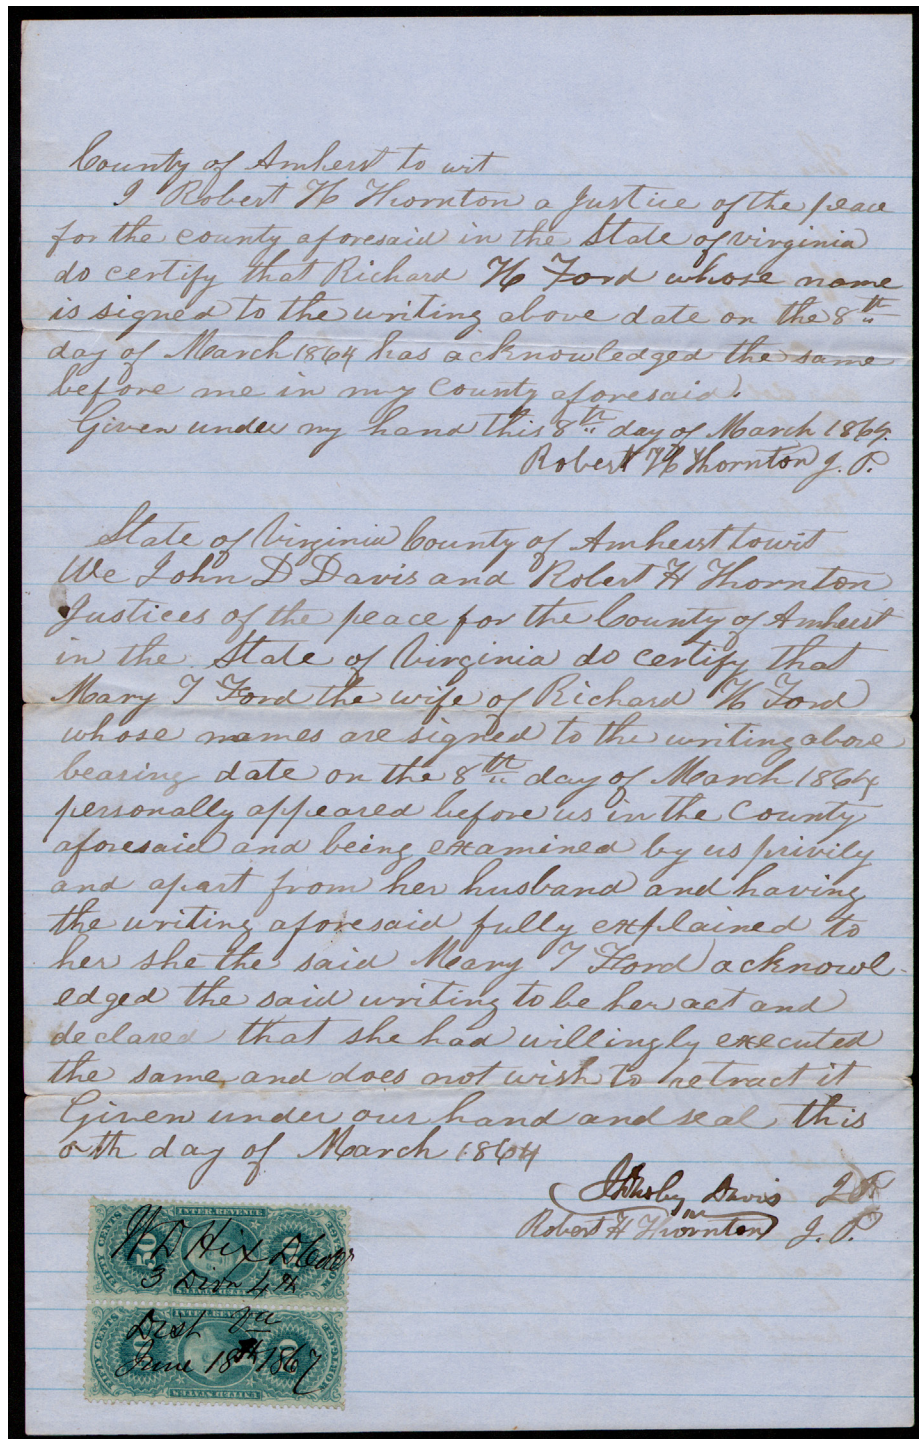 County of Amherst to wit
I Robert H Thornton a Justice of the peace
for the county aforesaid in the State of virginia
do certify that Richard H Ford whose name
is signed to the writing above date on the 8th
day of March 1864 has acknowledged the same
before me in my County aforesaid.
Given under my hand this 8th day of March 1864.
Robert H Thornton J. P.
State of Virginia County of Amherst towit
We John D Davis and Robert H Thornton
Justices of the peace for the County of Amherst
in the State of Virginia do certify that
Mary T Ford the wife of Richard H Ford
whose names are signed to the writing above
bearing date on the 8th day of March 1864
personally appeared before us in the County
aforesaid and being examined by us privily
and apart from her husband and having
the writing aforesaid fully explained to
her she the said Mary T Ford acknowl-
edged the said writing to be her act and
declared that she had willingly executed
the same and does not wish to retract it
Given under our hand and seal this
8th day of March 1864
Davis
Robert H Thornton J. P.
INTER. REVENUE
FIFTY CENTS
50
W D Hix
3 Divn 4th
Dist Va
June 18th 1867
INTER. REVENUE
FIFTY CENTS
UNITED STATES